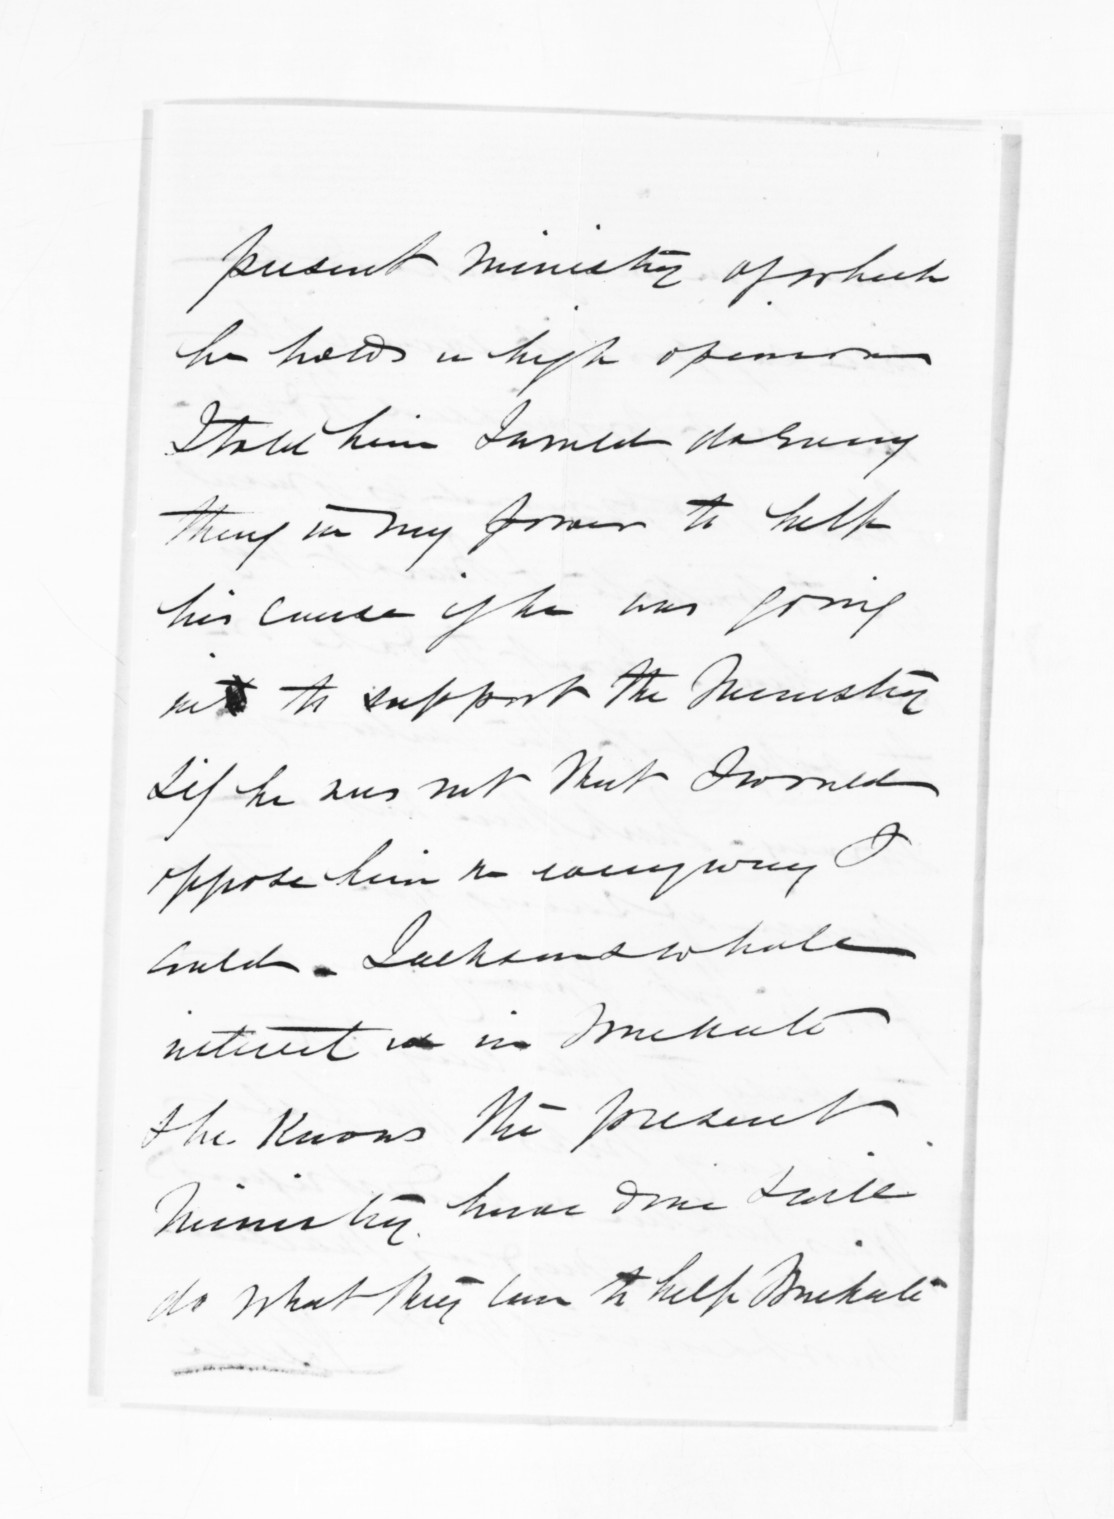 present ministry of which
he holds a high opinion
I told him I would do Every
thing in my power to help
his cause if he was going
in to support the Ministry
& if he was not that I would
oppose him in every way I
could. Jacksons whole
interest is in Maketu
& he Knows the present
Ministry have done & will
do what they can to help Maketu